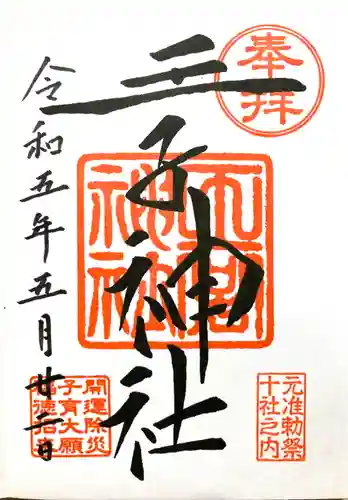 奉拝
王子神社
元准勅祭
十社之内
令和五年五月廿二日
開運除災
子育大願
福徳招来